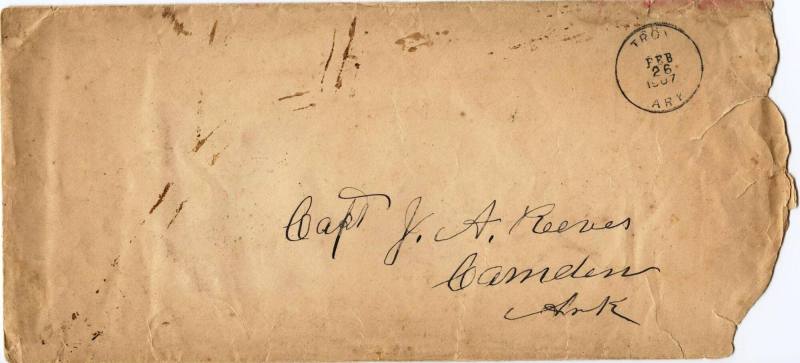 TROY
FEB
26
1907
ARK
Capt J. A. Reeves
Camden
Ark